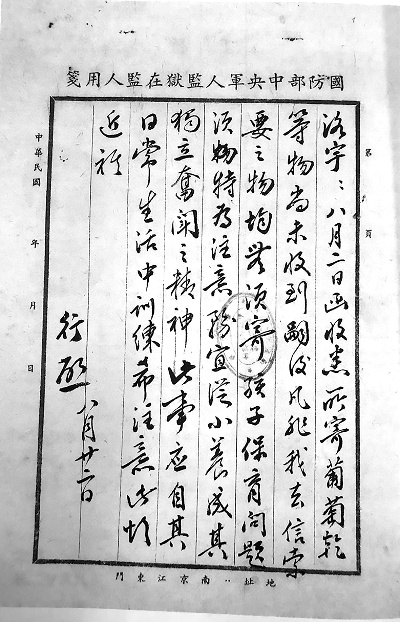 國防部中央軍人監獄在監人用箋
第 頁
洛宇：八月二日函收悉所寄葡萄乾
等物尚未收到嗣後凡非我去信索
要之物均無須寄孩子保育問題
須特為注意務宜從小養成其
獨立奮鬥之精神此事應自其
日常生活中訓練希注意此頌
近祺
行啟 八月廿二日
中華民國 年 月 日
地址：南京江東門